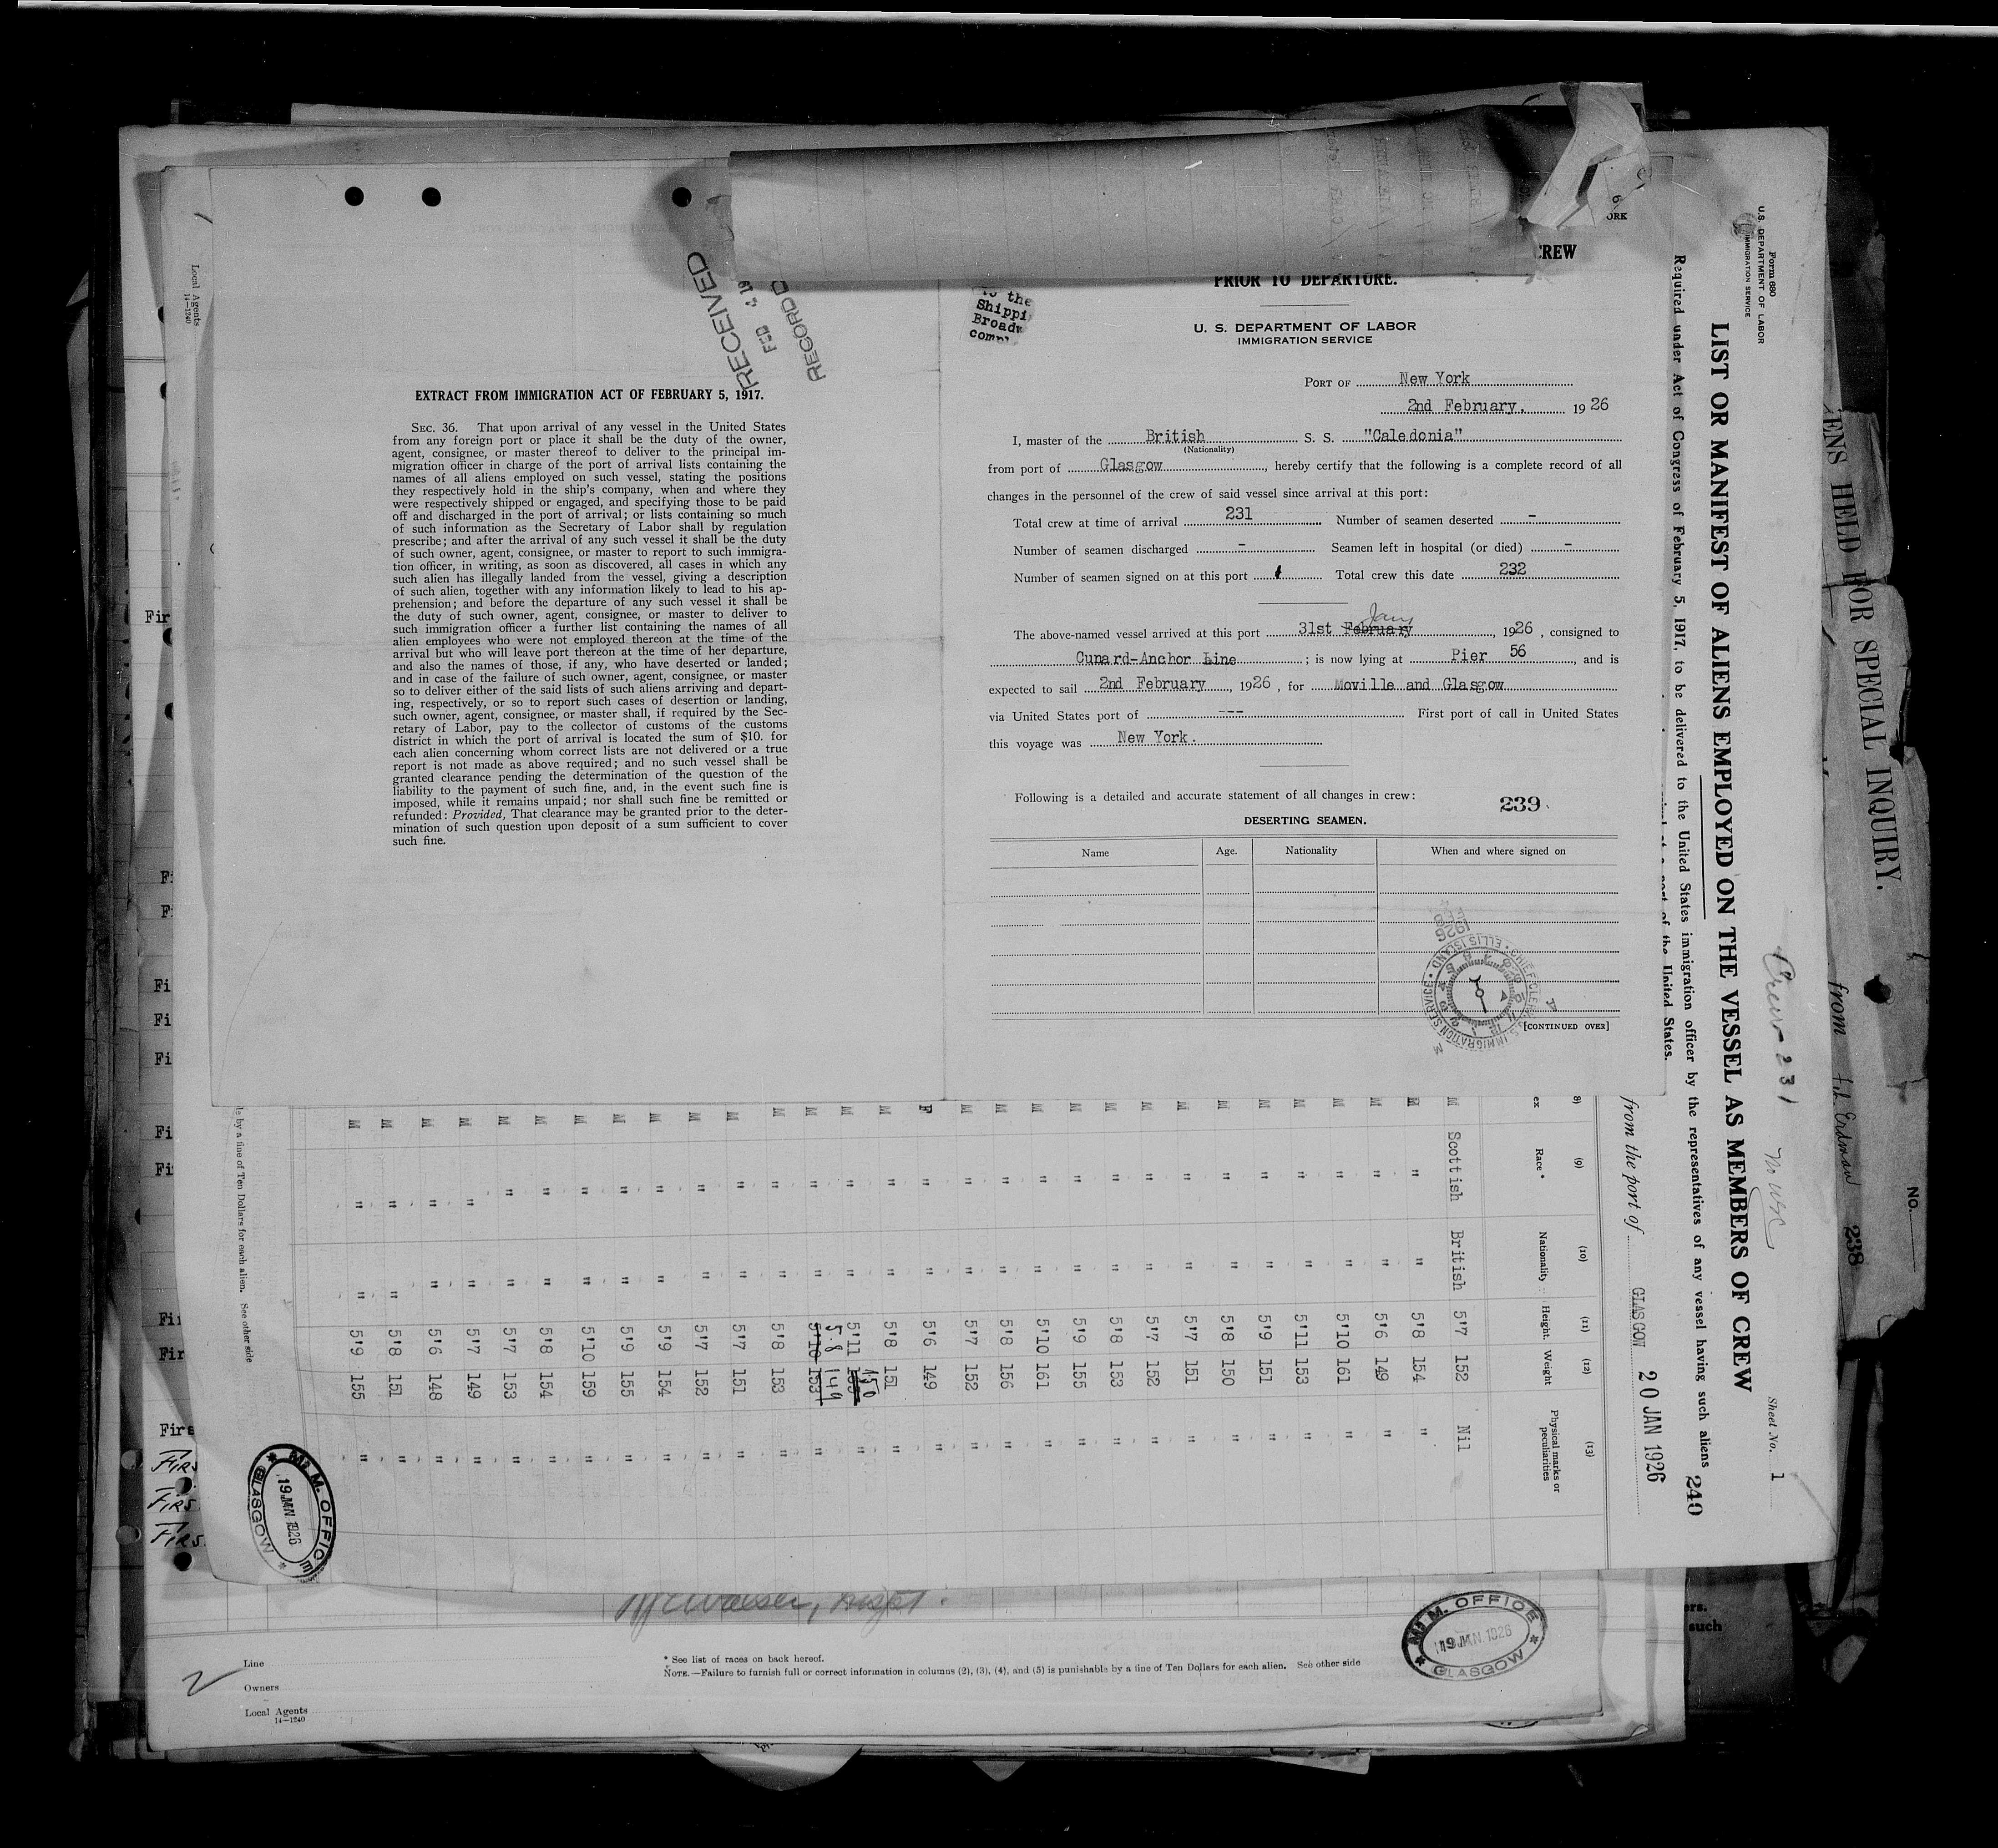 RECEIVED
FEB 4 19
RECORD D
EXTRACT FROM IMMIGRATION ACT OF FEBRUARY 5, 1917.
SEC. 36. That upon arrival of any vessel in the United States
from any foreign port or place it shall be the duty of the owner,
agent, consignee, or master thereof to deliver to the principal im-
migration officer in charge of the port of arrival lists containing the
names of all aliens employed on such vessel, stating the positions
they respectively hold in the ship's company, when and where they
were respectively shipped or engaged, and specifying those to be paid
off and discharged in the port of arrival; or lists containing so much
of such information as the Secretary of Labor shall by regulation
prescribe; and after the arrival of any such vessel it shall be the duty
of such owner, agent, consignee, or master to report to such immigra-
tion officer, in writing, as soon as discovered, all cases in which any
such alien has illegally landed from the vessel, giving a description
of such alien, together with any information likely to lead to his ap-
prehension; and before the departure of any such vessel it shall be
the duty of such owner, agent, consignee, or master to deliver to
such immigration officer a further list containing the names of all
alien employees who were not employed thereon at the time of the
arrival but who will leave port thereon at the time of her departure,
and also the names of those, if any, who have deserted or landed;
and in case of the failure of such owner, agent, consignee, or master
so to deliver either of the said lists of such aliens arriving and depart-
ing, respectively, or so to report such cases of desertion or landing,
such owner, agent, consignee, or master shall, if required by the Sec-
retary of Labor, pay to the collector of customs of the customs
district in which the port of arrival is located the sum of $10. for
each alien concerning whom correct lists are not delivered or a true
report is not made as above required; and no such vessel shall be
granted clearance pending the determination of the question of the
liability to the payment of such fine, and, in the event such fine is
imposed, while it remains unpaid; nor shall such fine be remitted or
refunded: Provided, That clearance may be granted prior to the deter-
mination of such question upon deposit of a sum sufficient to cover
such fine.
CREW
PRIOR TO DEPARTURE.
to the
Shippi
Broadw
comp
U. S. DEPARTMENT OF LABOR
IMMIGRATION SERVICE
PORT OF New York
2nd February, 1926
I, master of the British S. S. "Caledonia"
(Nationality)
from port of Glasgow, hereby certify that the following is a complete record of all
changes in the personnel of the crew of said vessel since arrival at this port:
Total crew at time of arrival 231 Number of seamen deserted -
Number of seamen discharged - Seamen left in hospital (or died) -
Number of seamen signed on at this port 1 Total crew this date 232
Jany
The above-named vessel arrived at this port 31st February, 1926, consigned to
Cunard-Anchor Line; is now lying at Pier 56, and is
expected to sail 2nd February, 1926, for Moville and Glasgow
via United States port of --- First port of call in United States
this voyage was New York.
Following is a detailed and accurate statement of all changes in crew: 239
DESERTING SEAMEN.
Name Age. Nationality When and where signed on
1926
U.S. IMMIGRATION SERVICE • ELLIS ISLAND • CHIEF CLERK
[CONTINUED OVER]
Form 680
U.S. DEPARTMENT OF LABOR
IMMIGRATION SERVICE
LIST OR MANIFEST OF ALIENS EMPLOYED ON THE VESSEL AS MEMBERS OF CREW
Required under Act of Congress of February 5, 1917, to be delivered to the United States immigration officer by the representatives of any vessel having such aliens 240
port of the United States.
Crew 231
Sheet No. 1
from the port of GLASGOW 20 JAN 1926
(8) (9) (10) (11) (12) (13)
ex Race* Nationality Height. Weight Physical marks or peculiarities
M Scottish British 5'7 152 Nil
M " " 5'8 154 "
M " " 5'6 149 "
M " " 5'10 161 "
M " " 5'11 153 "
M " " 5'9 151 "
M " " 5'8 150 "
M " " 5'7 151 "
M " " 5'7 152 "
M " " 5'8 153 "
M " " 5'9 155 "
M " " 5'10 161 "
M " " 5'8 156 "
M " " 5'7 152 "
F " " 5'6 149 "
M " " 5'8 151 "
M " " 5'11 150
M " " 5'10 153 5.8 149 "
M " " 5'8 153 "
M " " 5'7 151 "
M " " 5'7 152 "
M " " 5'9 154 "
M " " 5'9 155 "
M " " 5'10 159 "
M " " 5'8 154 "
M " " 5'7 153 "
M " " 5'7 149 "
M " " 5'6 148 "
M " " 5'8 151 "
M " " 5'9 155 "
Local Agents
14—1240
le by a fine of Ten Dollars for each alien. See other side
M. M. OFFICE
19 JAN 1926
GLASGOW
ENS HELD FOR SPECIAL INQUIRY.
from
238
NO.
Fir
Fi
F
Fi
Fi
Fi
Fi
Fi
Fir
Fir
Firs
FIRS
FIRS
FIRS
M. M. OFFICE
19 JAN 1926
GLASGOW
ers.
such
* See list of races on back hereof.
NOTE.—Failure to furnish full or correct information in columns (2), (3), (4), and (5) is punishable by a fine of Ten Dollars for each alien. See other side
Line
Owners
Local Agents
14—1240